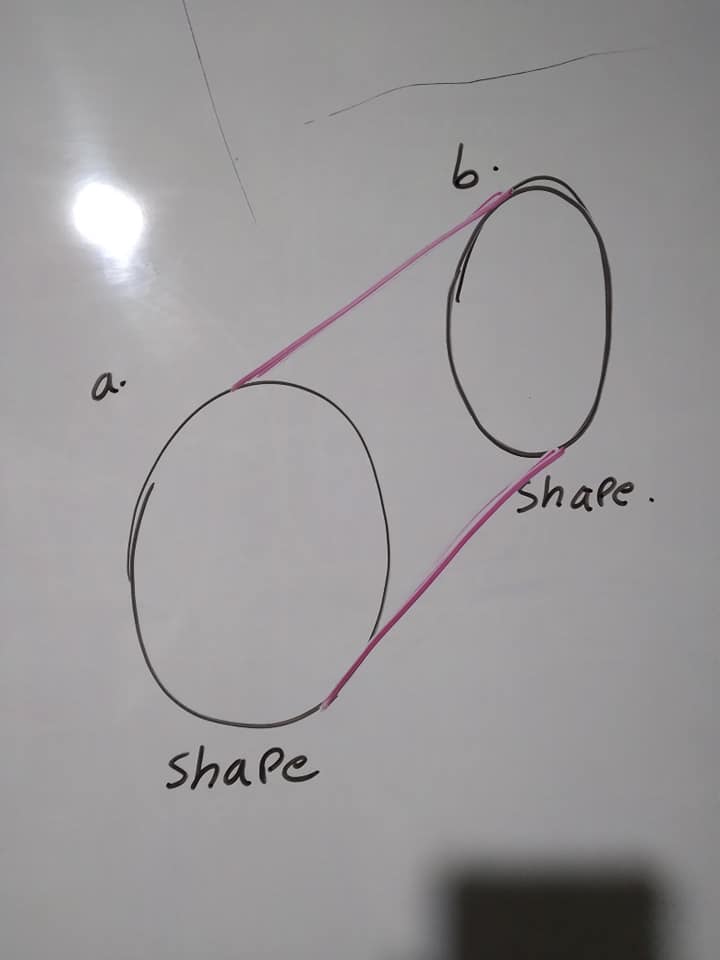 b.
a.
shape.
shape